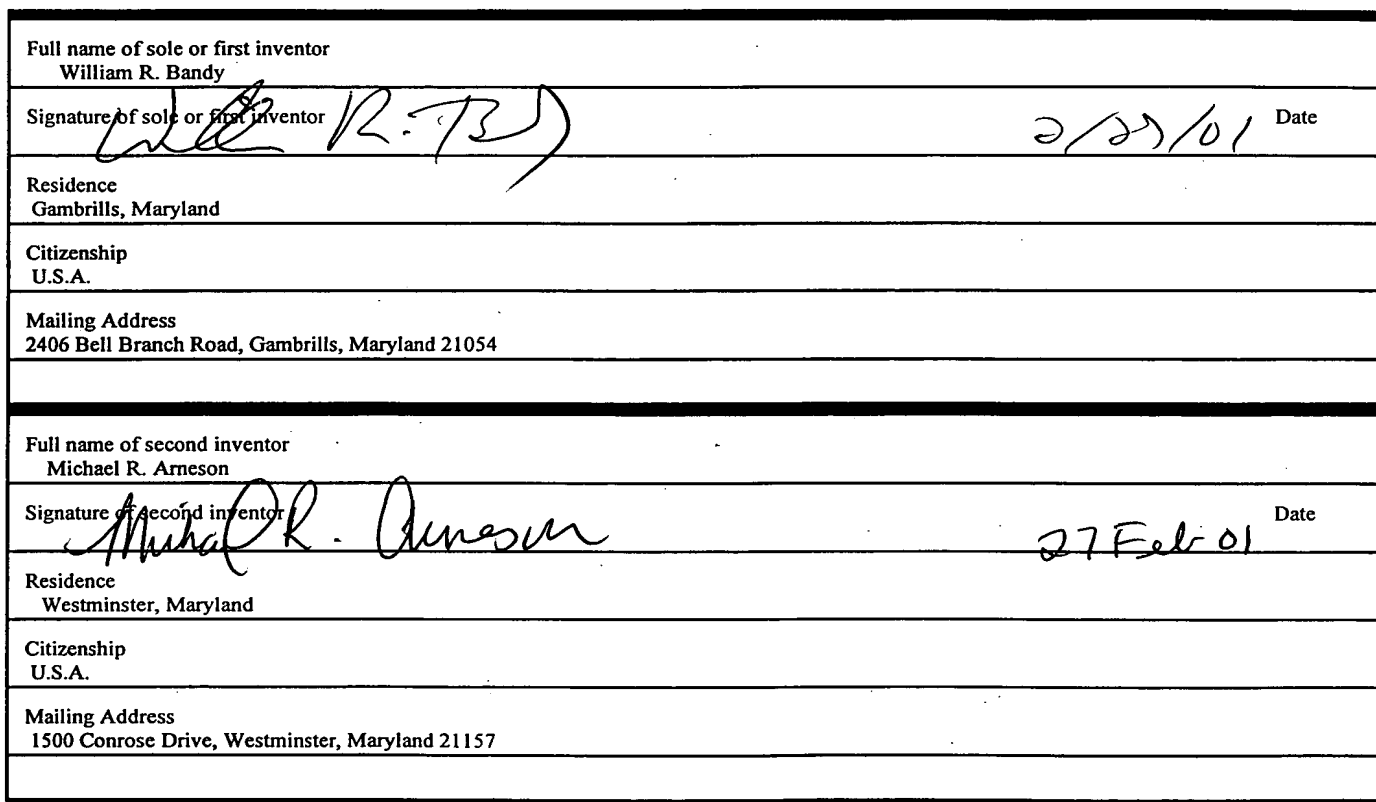 Full name of sole or first inventor
William R. Bandy
Signature of sole or first inventor R. Date
Residence
Gambrills, Maryland
Citizenship
U.S.A.
Mailing Address
2406 Bell Branch Road, Gambrills, Maryland 21054
Full name of second inventor
Michael R. Arneson
Signature of second inventor Michael R. Arneson 27 Feb 01 Date
Residence
Westminster, Maryland
Citizenship
U.S.A.
Mailing Address
1500 Conrose Drive, Westminster, Maryland 21157